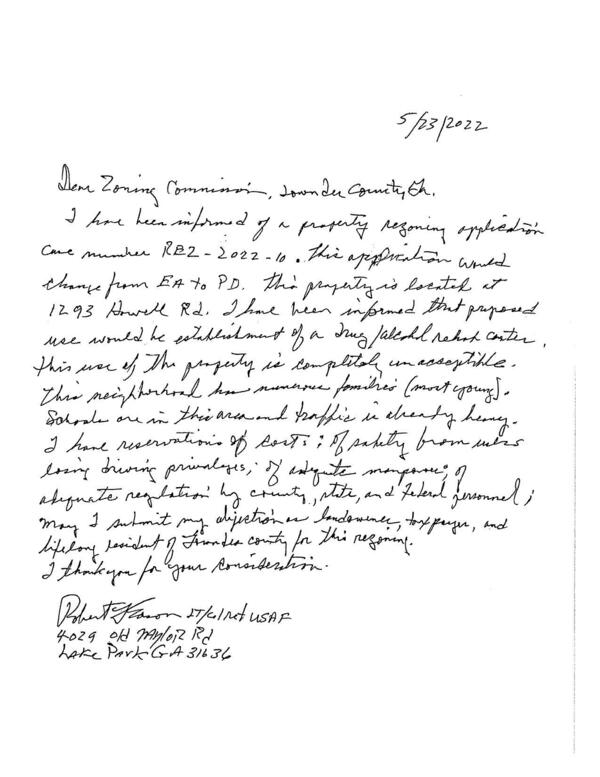 5/23/2022
Dear Zoning Commission, Lowndes County, Ga.
I have been informed of a property rezoning application
case number REZ-2022-10. This application would
change from EA to P.D. This property is located at
1293 Howell Rd. I have been informed that proposed
use would be establishment of a drug/alcohol rehab center.
this use of the property is completely unacceptible.
This neighborhood has numerous families (most young).
Schools are in this area and traffic is already heavy.
I have reservations of costs; of safety from users
losing driving privaleges; of adequate manpower; of
adequate regulation by county, state, and Federal personnel;
May I submit my objection as landowner, taxpayer, and
lifelong resident of Lowndes county for this rezoning.
I thank you for your consideration.
Robert LT/Col Ret USAF
4029 Old Naylor Rd
Lake Park GA 31636